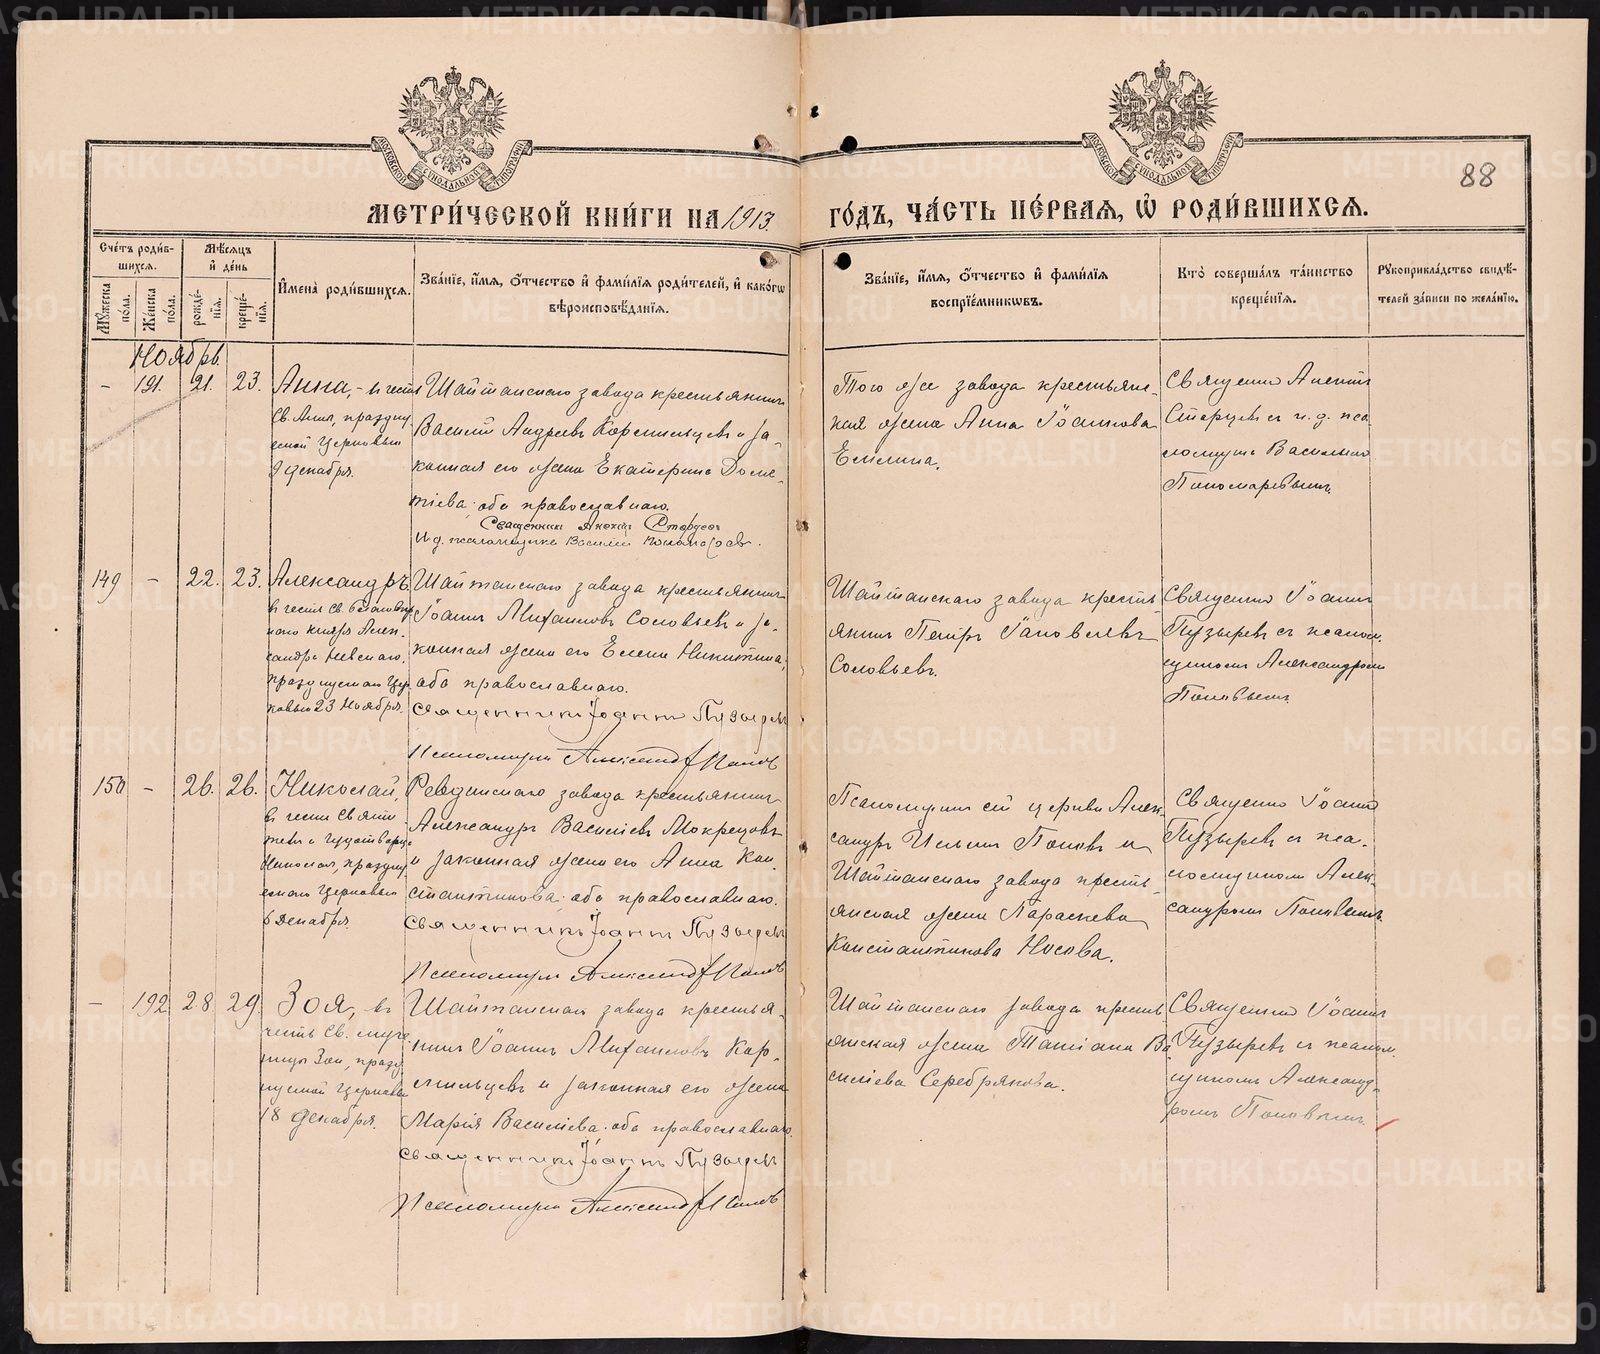 МЕТРИ́ЧЕСКОЙ КНИ́ГИ НА 1913.
ГО́ДЪ, ЧА́СТЬ ПЕ́РВАЯ, Ѡ҆ РОДИ́ВШИХСЯ.
88
Сче́тъ роди́в-
шихся.
Мѣ́сяцъ
и҆ де́нь
Мꙋ́жеска
по́ла.
Же́нска
по́ла.
рожде́-
нїя.
креще́-
нїя.
И҆мена̀ роди́вшихся.
Зва́нїе, и҆́мя, ѻ҆́тчество и҆ фами́лїя роди́телей, и҆ како́гѡ
вѣроисповѣ́данїя.
Зва́нїе, и҆́мя, ѻ҆́тчество и҆ фами́лїя
воспрїе́мникѡвъ.
Кто̀ соверша́лъ та́инство
креще́нїя.
Рꙋкоприкла́дство свидѣ́-
телей за́писи по жела́нїю.
Ноябрь.
- 191. 21. 23.
Анна, - въ честь
Св. Анны, праздну-
емой Церковью
9 декабря.
Шайтанскаго завода крестьянинъ
Василій Андреевъ Кормильцевъ и за-
конная его жена Екатерина Доме-
тіева; оба православнаго.
Священникъ Стерцевъ
И. д. псаломщика Василій Пономаревъ.
Того же завода крестьян-
ская жена Анна Іоаннова
Емелина.
Священникъ
Стерцевъ с и. д. пса-
ломщика Василіемъ
Пономаревымъ.
149 - 22. 23.
Александръ
въ честь Св. благовѣр-
наго князя Алек-
сандра Невскаго,
празднуемаго Цер-
ковью 23 Ноября.
Шайтанскаго завода крестьянинъ
Іоаннъ Михаиловъ Соловьевъ и за-
конная жена его Елена Никитина;
оба православнаго.
Священникъ Іоаннъ Пузыревъ
Псаломщикъ Александръ Поповъ
Шайтанскаго завода кресть-
янинъ Петръ
Соловьевъ.
Священникъ Іоаннъ
Пузыревъ съ псалом-
щикомъ Александромъ
Поповымъ.
150 - 26. 26.
Николай,
въ честь Святи-
теля и Чудотворца
Николая, праздну-
емаго Церковью
6 декабря.
Ревдинскаго завода крестьянинъ
Александръ Василіевъ Мокрецовъ
и законная жена его Анна Кон-
стантинова; оба православнаго.
Священникъ Іоаннъ Пузыревъ
Псаломщикъ Александръ Поповъ
Псаломщикъ сей церкви Алек-
сандръ Ильинъ Поповъ и
Шайтанскаго завода кресть-
янская жена Параскева
Константинова Носова.
Священникъ Іоаннъ
Пузыревъ съ пса-
ломщикомъ Алек-
сандромъ Поповымъ.
- 192 28 29.
Зоя, въ
честь Св. муче-
ницы Зои, празд-
нуемой Церковью
18 декабря.
Шайтанскаго завода крестья-
нинъ Іоаннъ Михаиловъ Кор-
мильцевъ и законная его жена
Марія Василіева; оба православнаго.
Священникъ Іоаннъ Пузыревъ
Псаломщикъ Александръ Поповъ
Шайтанскаго завода кресть-
янская жена Татіана Ва-
силіева Серебрякова.
Священникъ Іоаннъ
Пузыревъ съ псалом-
щикомъ Александ-
ромъ Поповымъ.
METRIKI.GASO-URAL.RU